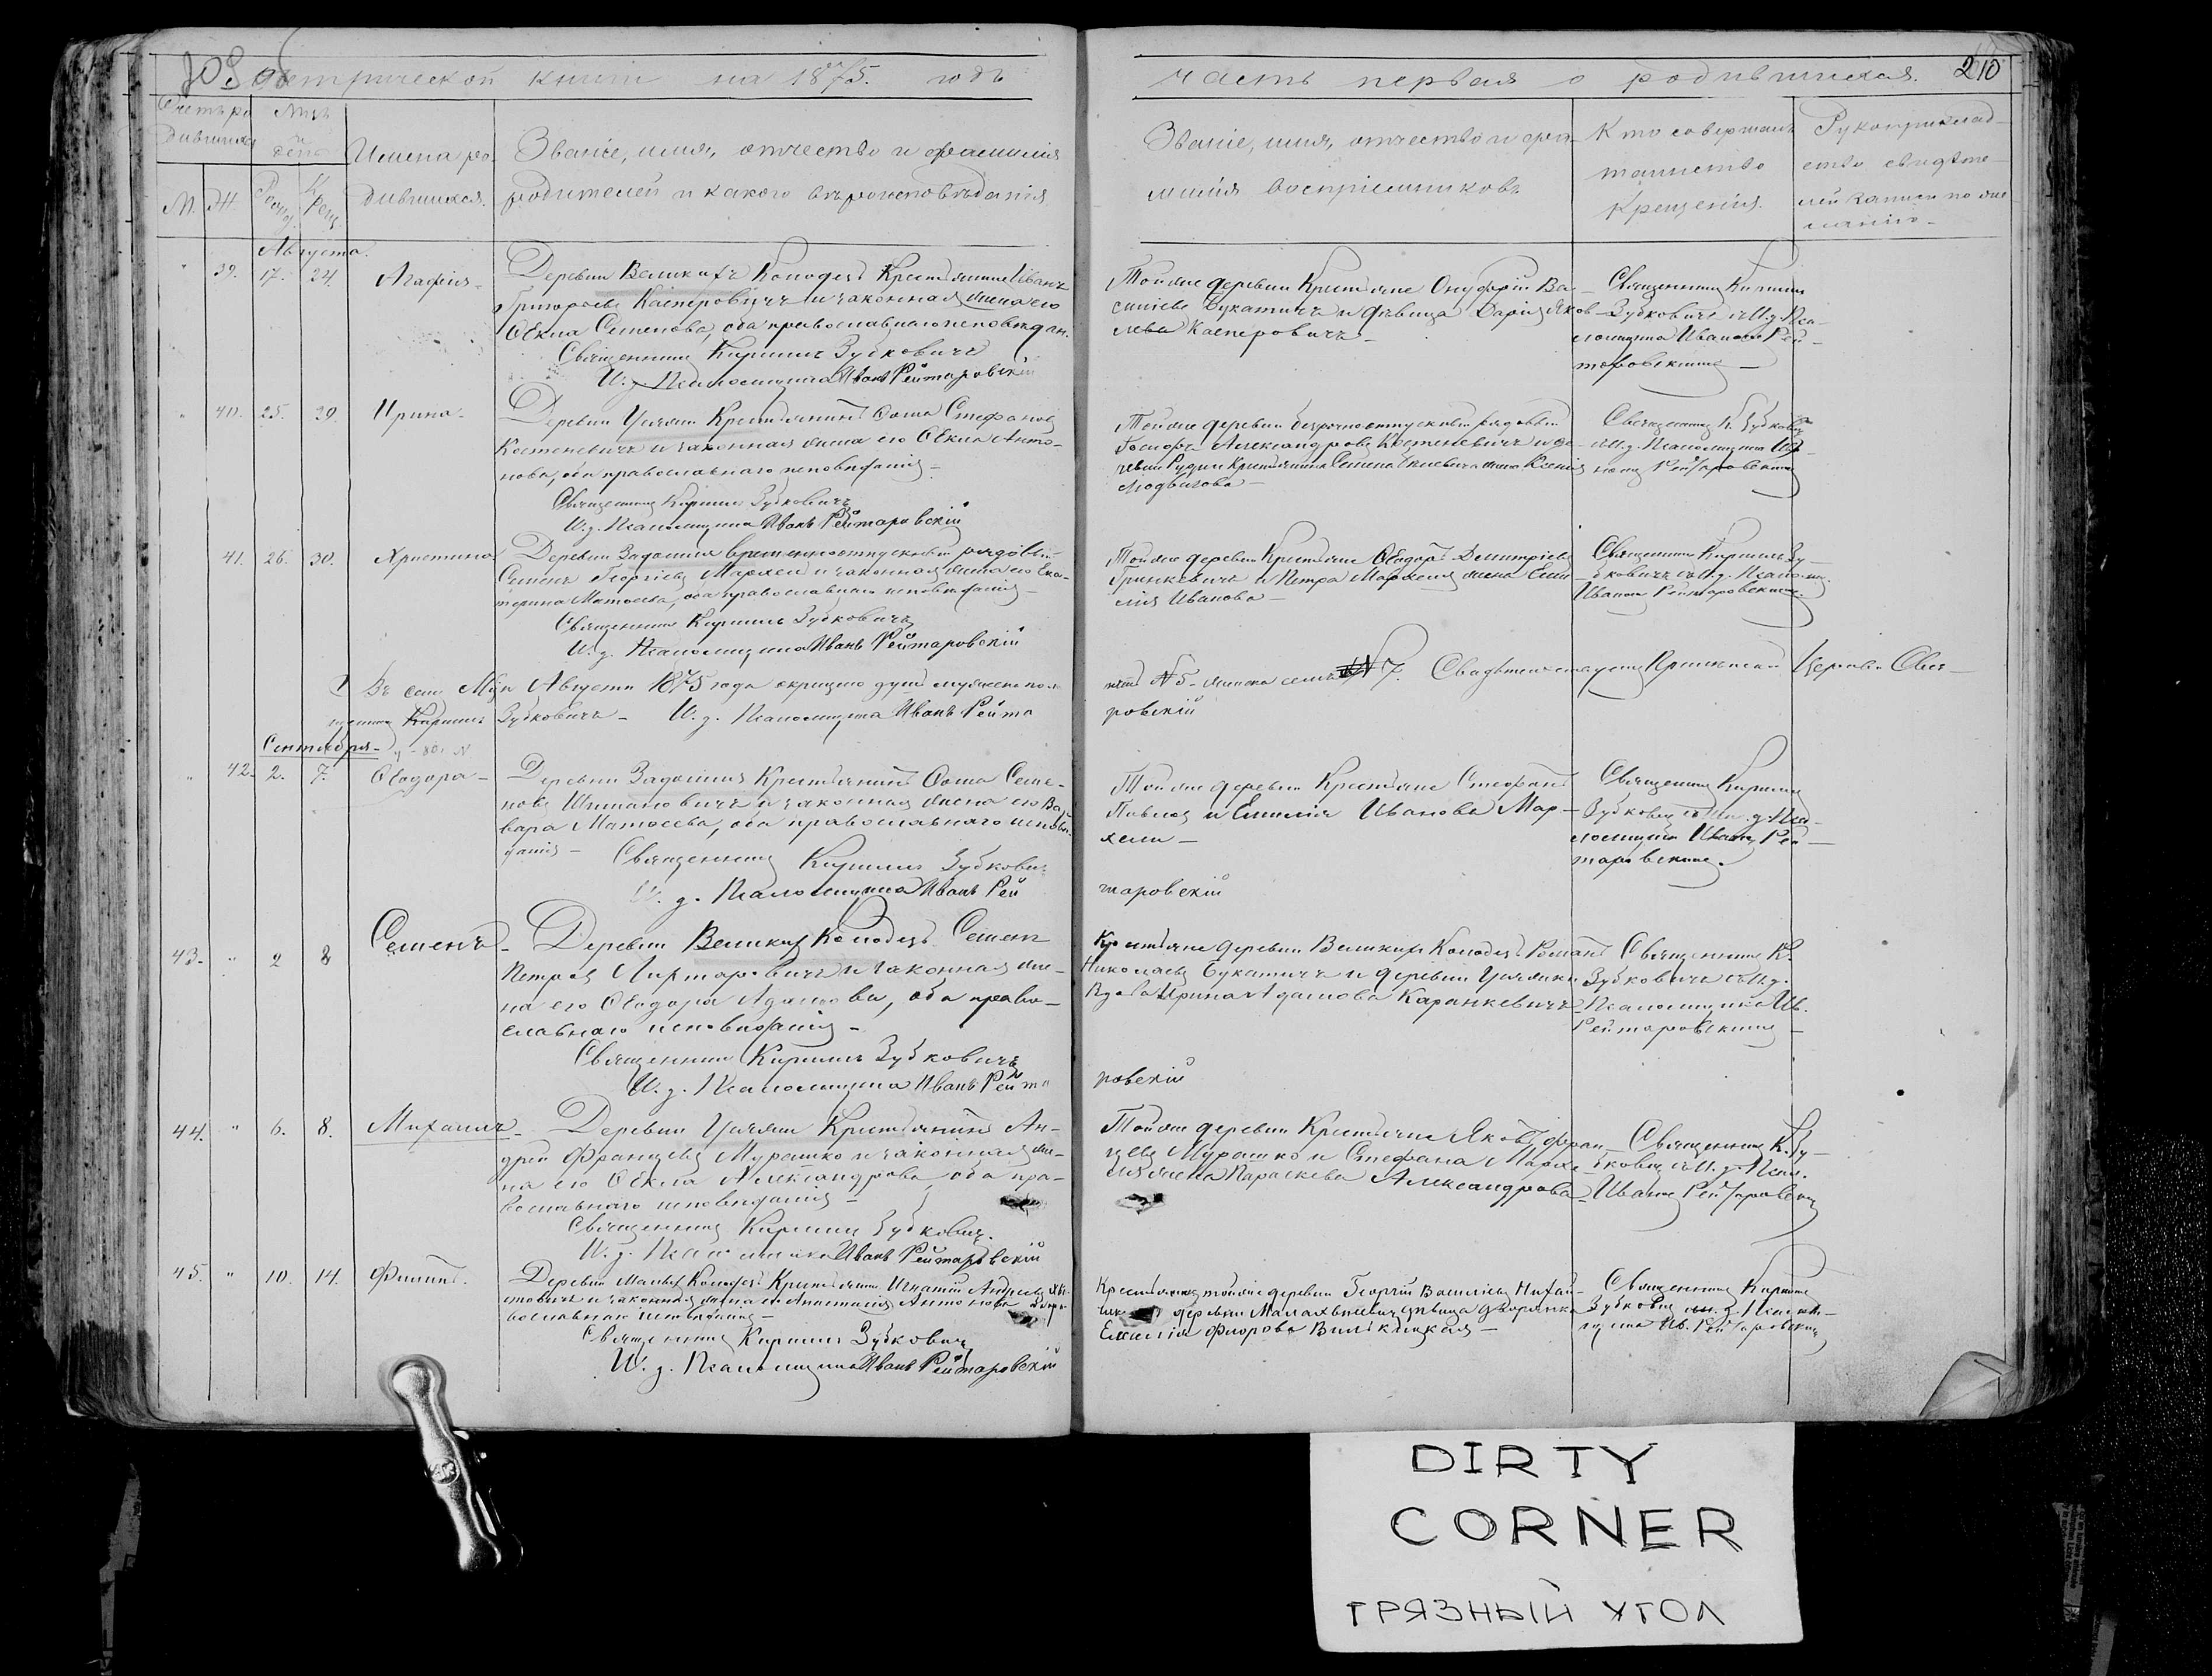 Метрической книги на 1875. годъ
часть первая о родившихся. 210
Счетъ родившихся
М. Ж.
Мцъ и день
Рожд. Крещ.
Имена родившихся.
Званіе, имя, отчество и фамилія
родителей и какого вѣроисповѣданія
Званіе, имя, отчество и фамилія воспріемниковъ
Кто совершалъ
таинство
крещенія.
Рукоприкладство свидѣтелей записи по желанію
Августа.
39. 17. 24. Агафія
Деревни Великихъ Колодезь Крестьянинъ Иванъ
Григорьевъ Касперовичъ и законная жена его
Ѳекла Семенова, оба православнаго исповѣдан.
Священникъ Кириллъ Зубковичъ
И. д. Псаломщика Иванъ Рейтаровскій
Тойже деревни Крестьяне Онуфрій Ва-
силіевъ Букатичъ и дѣвица Дарія Яков-
лева Касперовичъ
Священникъ Кириллъ
Зубковичъ съ И. д. Пса-
ломщика Иваномъ Рей-
таровскимъ
40. 25. 30. Ирина
Деревни Крестьянинъ Ѳома Стефановъ
Костеневичъ и законная жена его Ѳекла Анто-
нова, оба православнаго исповѣданія
Священникъ Кириллъ Зубковичъ
И. д. Псаломщика Иванъ Рейтаровскій
Тойже деревни безсрочноотпускный рядовый
Александровъ Костеневичъ и де-
ревни Рудни Крестьянина жена Ксенія
Людвигова
Священникъ К. Зубковичъ
съ И. д. Псаломщика Ива-
номъ Рейтаровскимъ
41. 26. 30. Христина
Деревни Задолина временноотпускный рядовый
Семенъ Георгіевъ Мархель и законная жена его Ека-
терина Матѳеева, оба православнаго исповѣданія
Священникъ Кириллъ Зубковичъ
И. д. Псаломщика Иванъ Рейтаровскій
Тойже деревни Крестьяне Ѳеодоръ Димитріевъ
Гринкевичъ и Петра Мархеля жена Еми-
лія Иванова
Священникъ Кириллъ Зу-
бковичъ съ И. д. Псалом.
Иваномъ Рейтаровскимъ
Въ семъ Мцѣ Августѣ 1875 года крещено душъ мужеска по-
№ 5 - женска семь № 7. Церкви Свя-
щенникъ Кириллъ Зубковичъ - И. д. Псаломщика Иванъ Рейта
ровскій
Сентября
42. 2. 7. Ѳеодора
Деревни Задолина Крестьянинъ Ѳома Семе-
новъ и законная жена его Вар-
вара Матѳеева, оба православнаго исповѣ-
данія - Священникъ Кириллъ Зубкович
И. д. Псаломщика Иванъ Рей
таровскій
Тойже деревни Крестьяне Стефанъ
Павловъ и Емилія Иванова Мар-
хели
Священникъ Кириллъ
Зубкович съ И. д. Пса-
ломщика Иваномъ Рей-
таровскимъ.
43. 2 8 Семенъ
Деревни Великихъ Колодезь Семенъ
Петровъ и законная же-
на его Ѳеодора Адамова, оба право-
славнаго исповѣданія
Священникъ Кириллъ Зубковичъ
И. д. Псаломщика Иванъ Рейта
ровскій
Крестьяне деревни Великихъ Колодезь Романъ
Николаевъ Букатичъ и деревни
Вдова Ирина Адамова Каранкевичъ
Священникъ К.
Зубковичъ съ И. д.
Псаломщика Ив.
Рейтаровскимъ
44. 6. 8. Михаилъ
Деревни Крестьянинъ Ан-
дрей Францевъ Мурашко и законная же-
на его Ѳекла Александрова, оба пра-
вославнаго исповѣданія
Священникъ Кириллъ Зубкович.
И. д. Псаломщика Иванъ Рейтаровскій
Тойже деревни Крестьяне Яковъ Фран-
цевъ Мурашко и Стефана Мархе-
ля жена Параскева Александрова
Священникъ К. Зу-
бковичъ съ И. д. Псал.
Иваномъ Рейтаровским
45. 10. 14. Филиппъ.
Деревни Малыхъ Колодезь Крестьянинъ Игнатій Андреевъ
и законная жена его Анастасія Антонова
православнаго исповѣданія
Священникъ Кириллъ Зубкович
И. д. Псаломщика Иванъ Рейтаровскій
Крестьянинъ тойже деревни Георгій Васильевъ
деревни дѣвица дворянка
Емилія Флорова
Священникъ Кириллъ
Зубкович съ И. д. Псалом-
щика Ив. Рейтаровским
DIRTY
CORNER
ГРЯЗНЫЙ УГОЛ